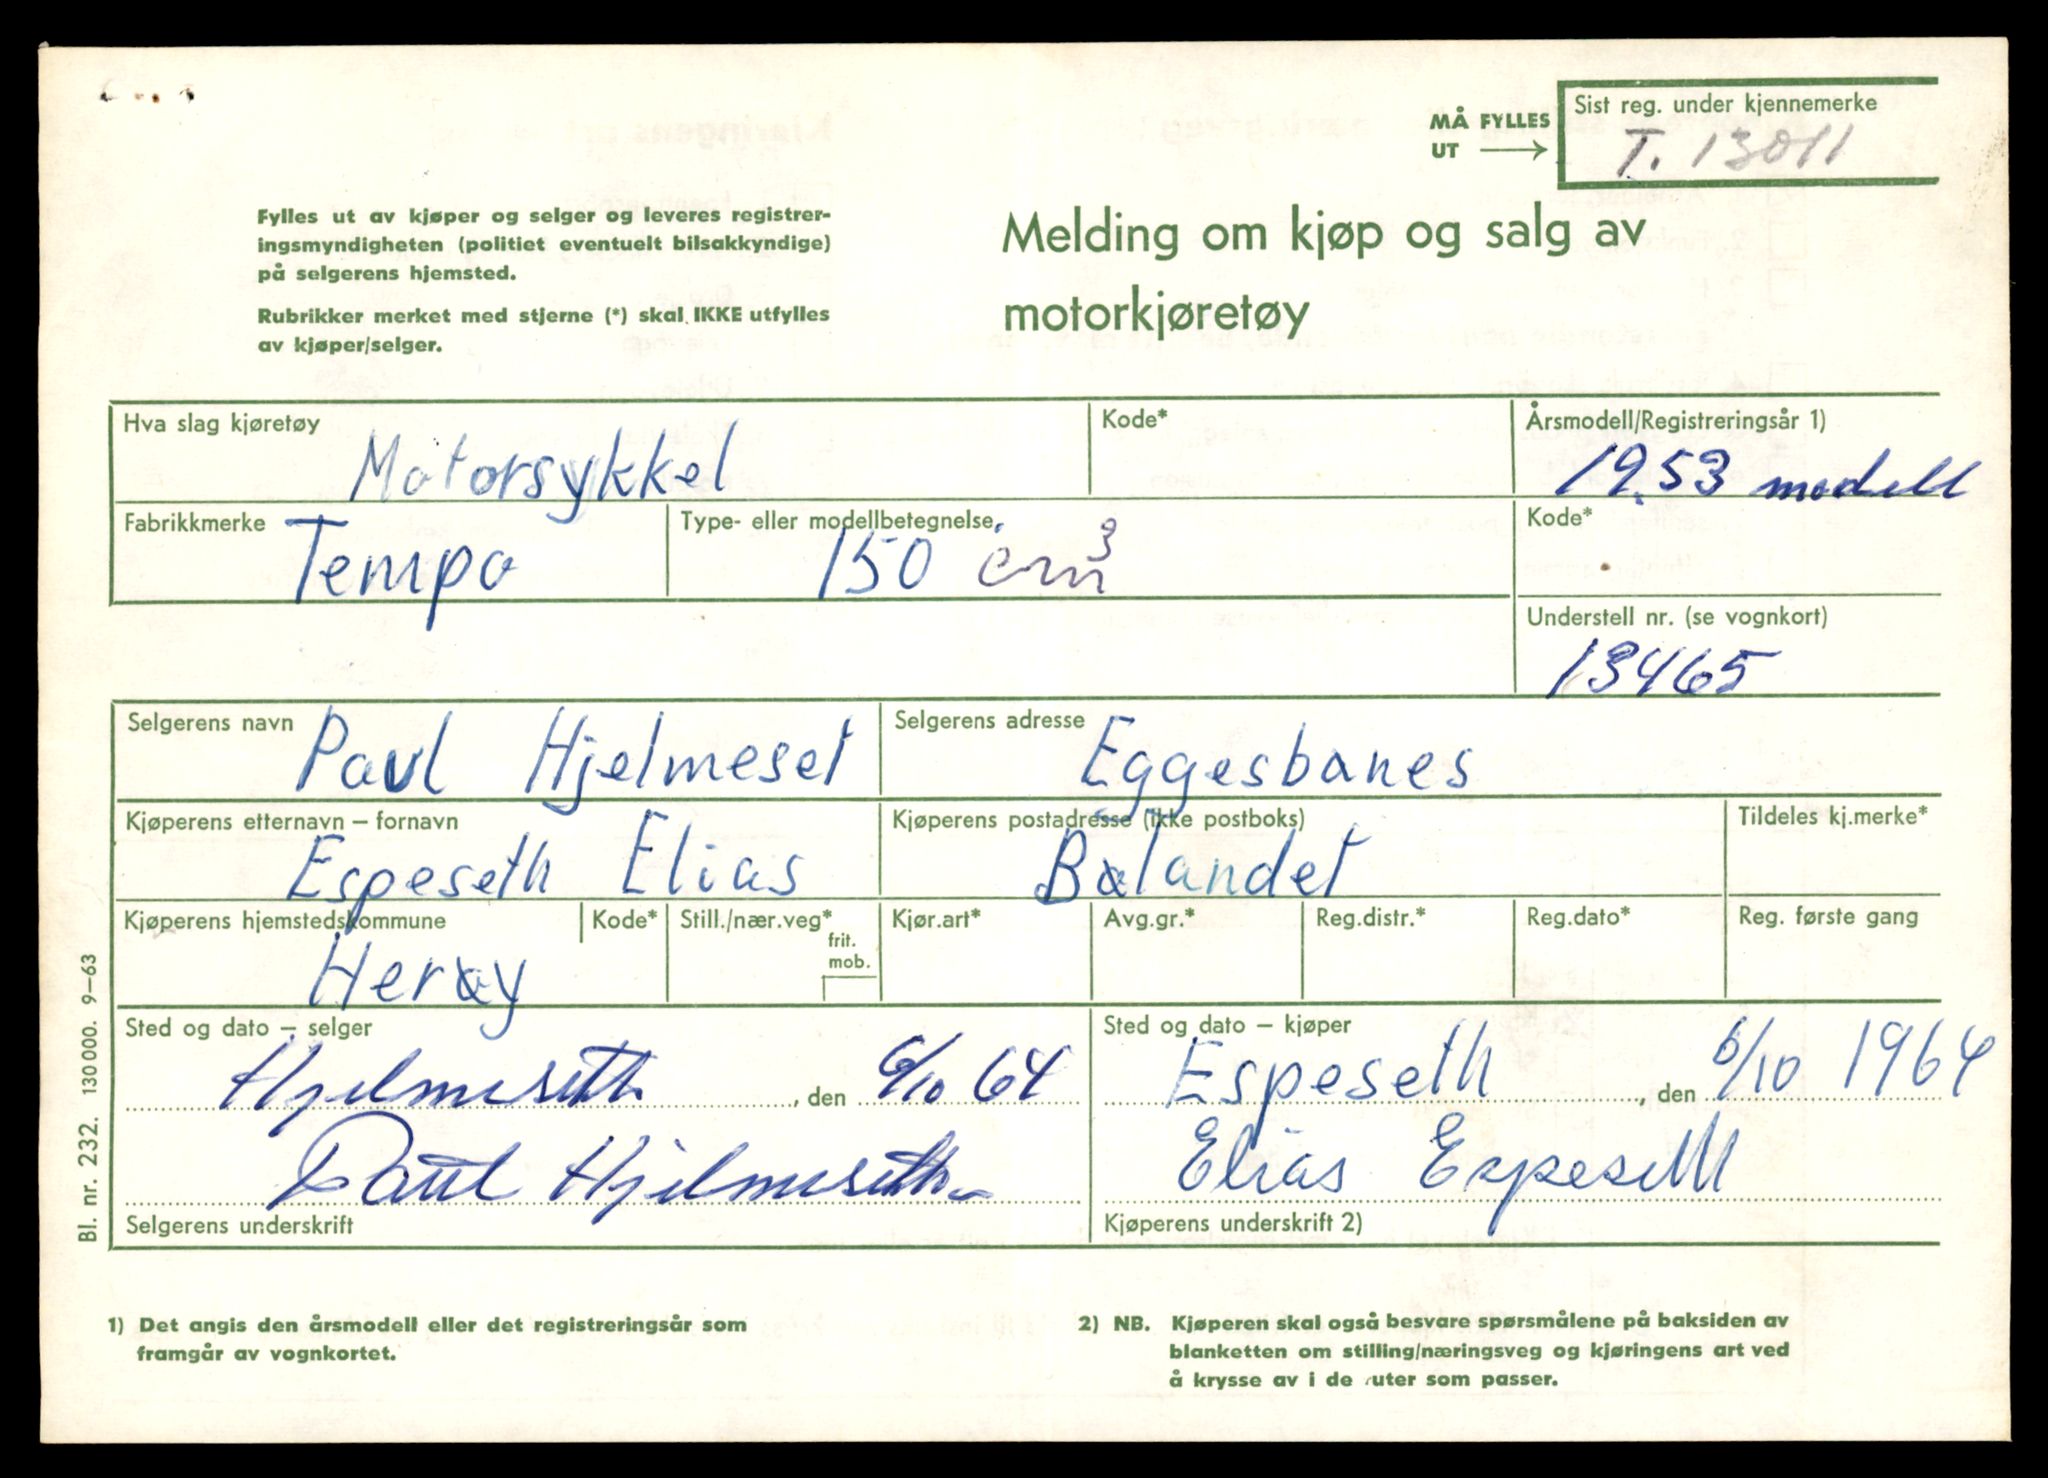 MÅ FYLLES UT →
Sist reg. under kjennemerke
T. 13011
Fylles ut av kjøper og selger og leveres registrer-
ingsmyndigheten (politiet eventuelt bilsakkyndige)
på selgerens hjemsted.
Rubrikker merket med stjerne (*) skal IKKE utfylles
av kjøper/selger.
Melding om kjøp og salg av
motorkjøretøy
Hva slag kjøretøy
Motorsykkel
Kode*
Årsmodell/Registreringsår 1)
1953 modell
Fabrikkmerke
Tempo
Type- eller modellbetegnelse
150 cm³
Kode*
Understell nr. (se vognkort)
13465
Selgerens navn
Paul Hjelmeset
Selgerens adresse
Eggesbønes
Kjøperens etternavn – fornavn
Espeseth Elias
Kjøperens postadresse (ikke postboks)
Bølandet
Tildeles kj.merke*
Kjøperens hjemstedskommune
Herøy
Kode*
Still./nær.veg*
frit.
mob.
Kjør.art*
Avg.gr.*
Reg.distr.*
Reg.dato*
Reg. første gang
Sted og dato – selger
Hjelmeseth, den 6/10 64
Paul Hjelmeseth
Selgerens underskrift
Sted og dato – kjøper
Espeseth, den 6/10 1964
Elias Espeseth
Kjøperens underskrift 2)
Bl. nr. 232. 130 000. 9–63
1) Det angis den årsmodell eller det registreringsår som
framgår av vognkortet.
2) NB. Kjøperen skal også besvare spørsmålene på baksiden av
blanketten om stilling/næringsveg og kjøringens art ved
å krysse av i de ruter som passer.